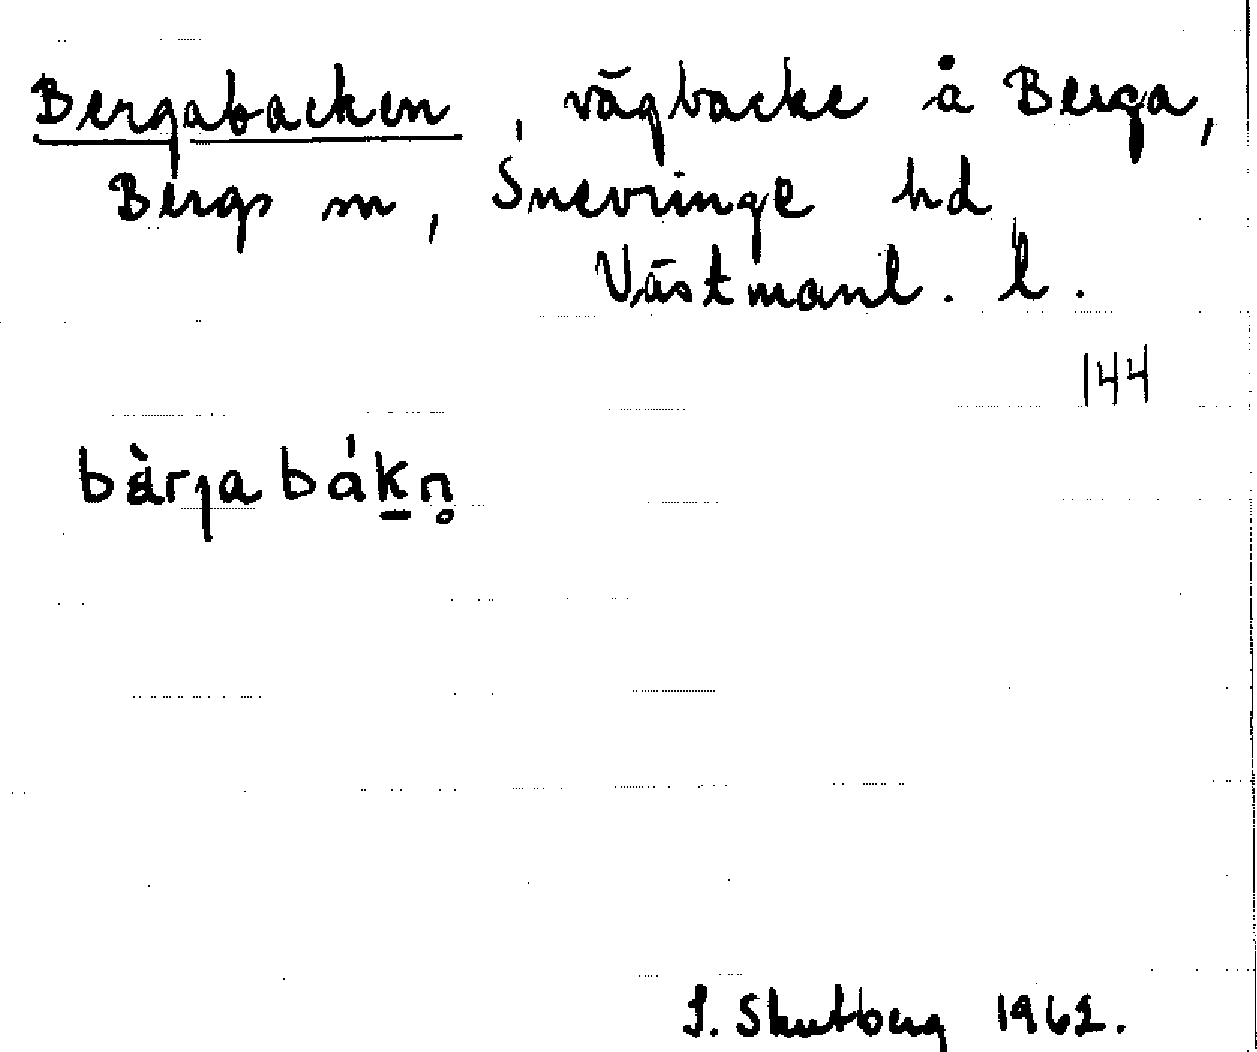 Bergabacken, vägbacke å Berga,
Bergs sn, Snevringe hd
Västmanl. l.
144
bàrȷa bákn̥
S. Skutberg 1962.